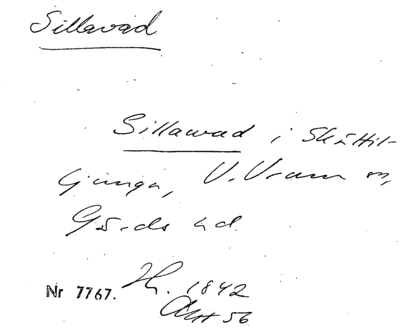 Sillavad
Sillawad i Skättil-
ljunga, V. Vram sn,
Gärds hd.
Nr 7767. H. 1842
Akt 56